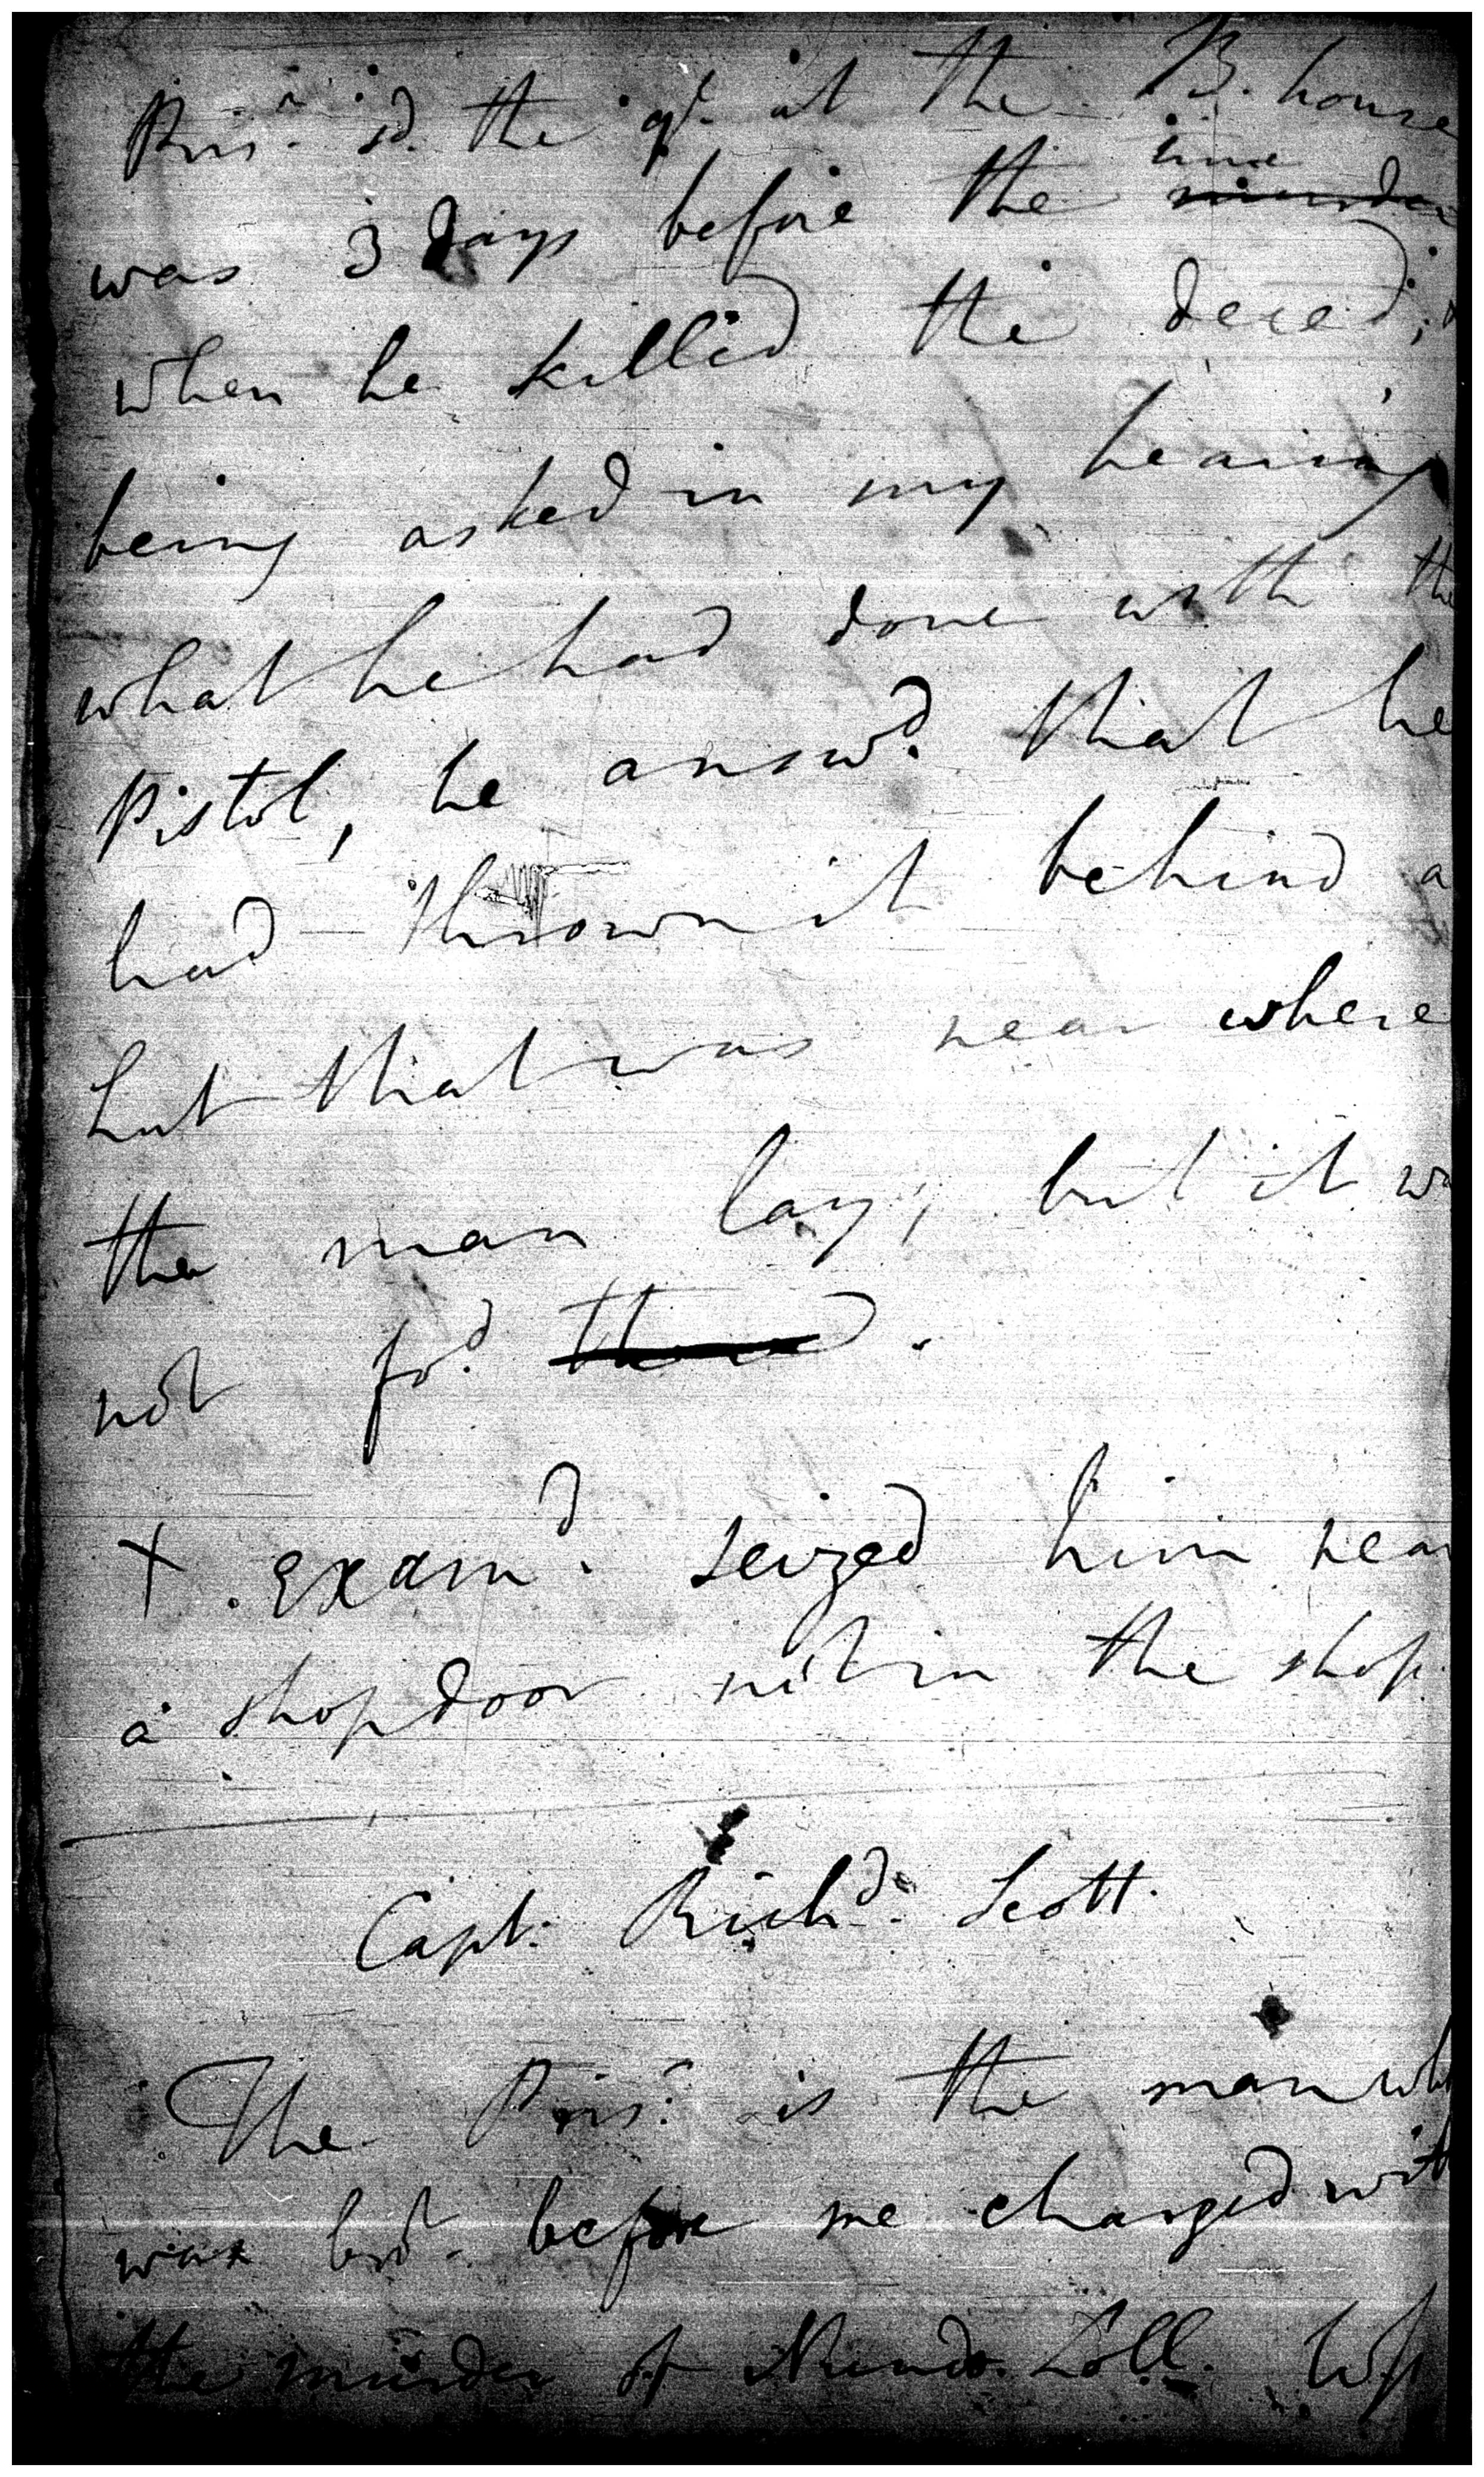 Prisr. sd. the ql. at the B. house
was 3 days before the time murder
when he killed the deced;
being asked in my hearing
what he had done with the
Pistol, he answd. that he
had thrown it behind a
hut that was near where
the man lay; but it wa
not fod. there.
X. Examd. seized him near
a shop door not in the shop.
Capt. Richd. Scott.
The Prisr. is the man who
was brot. before me charged with
the murder of Nundo Loll.